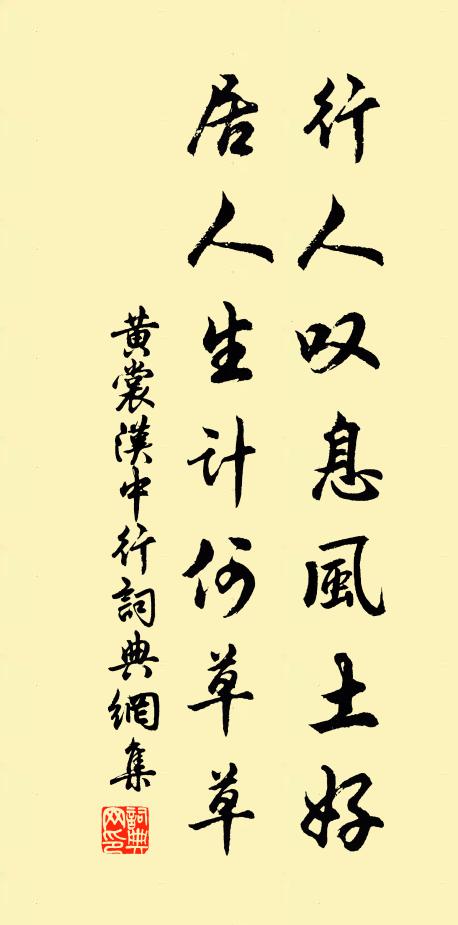 行人叹息風土好
居人生計何草草
黄裳漢中行詞典網集
詞典网印